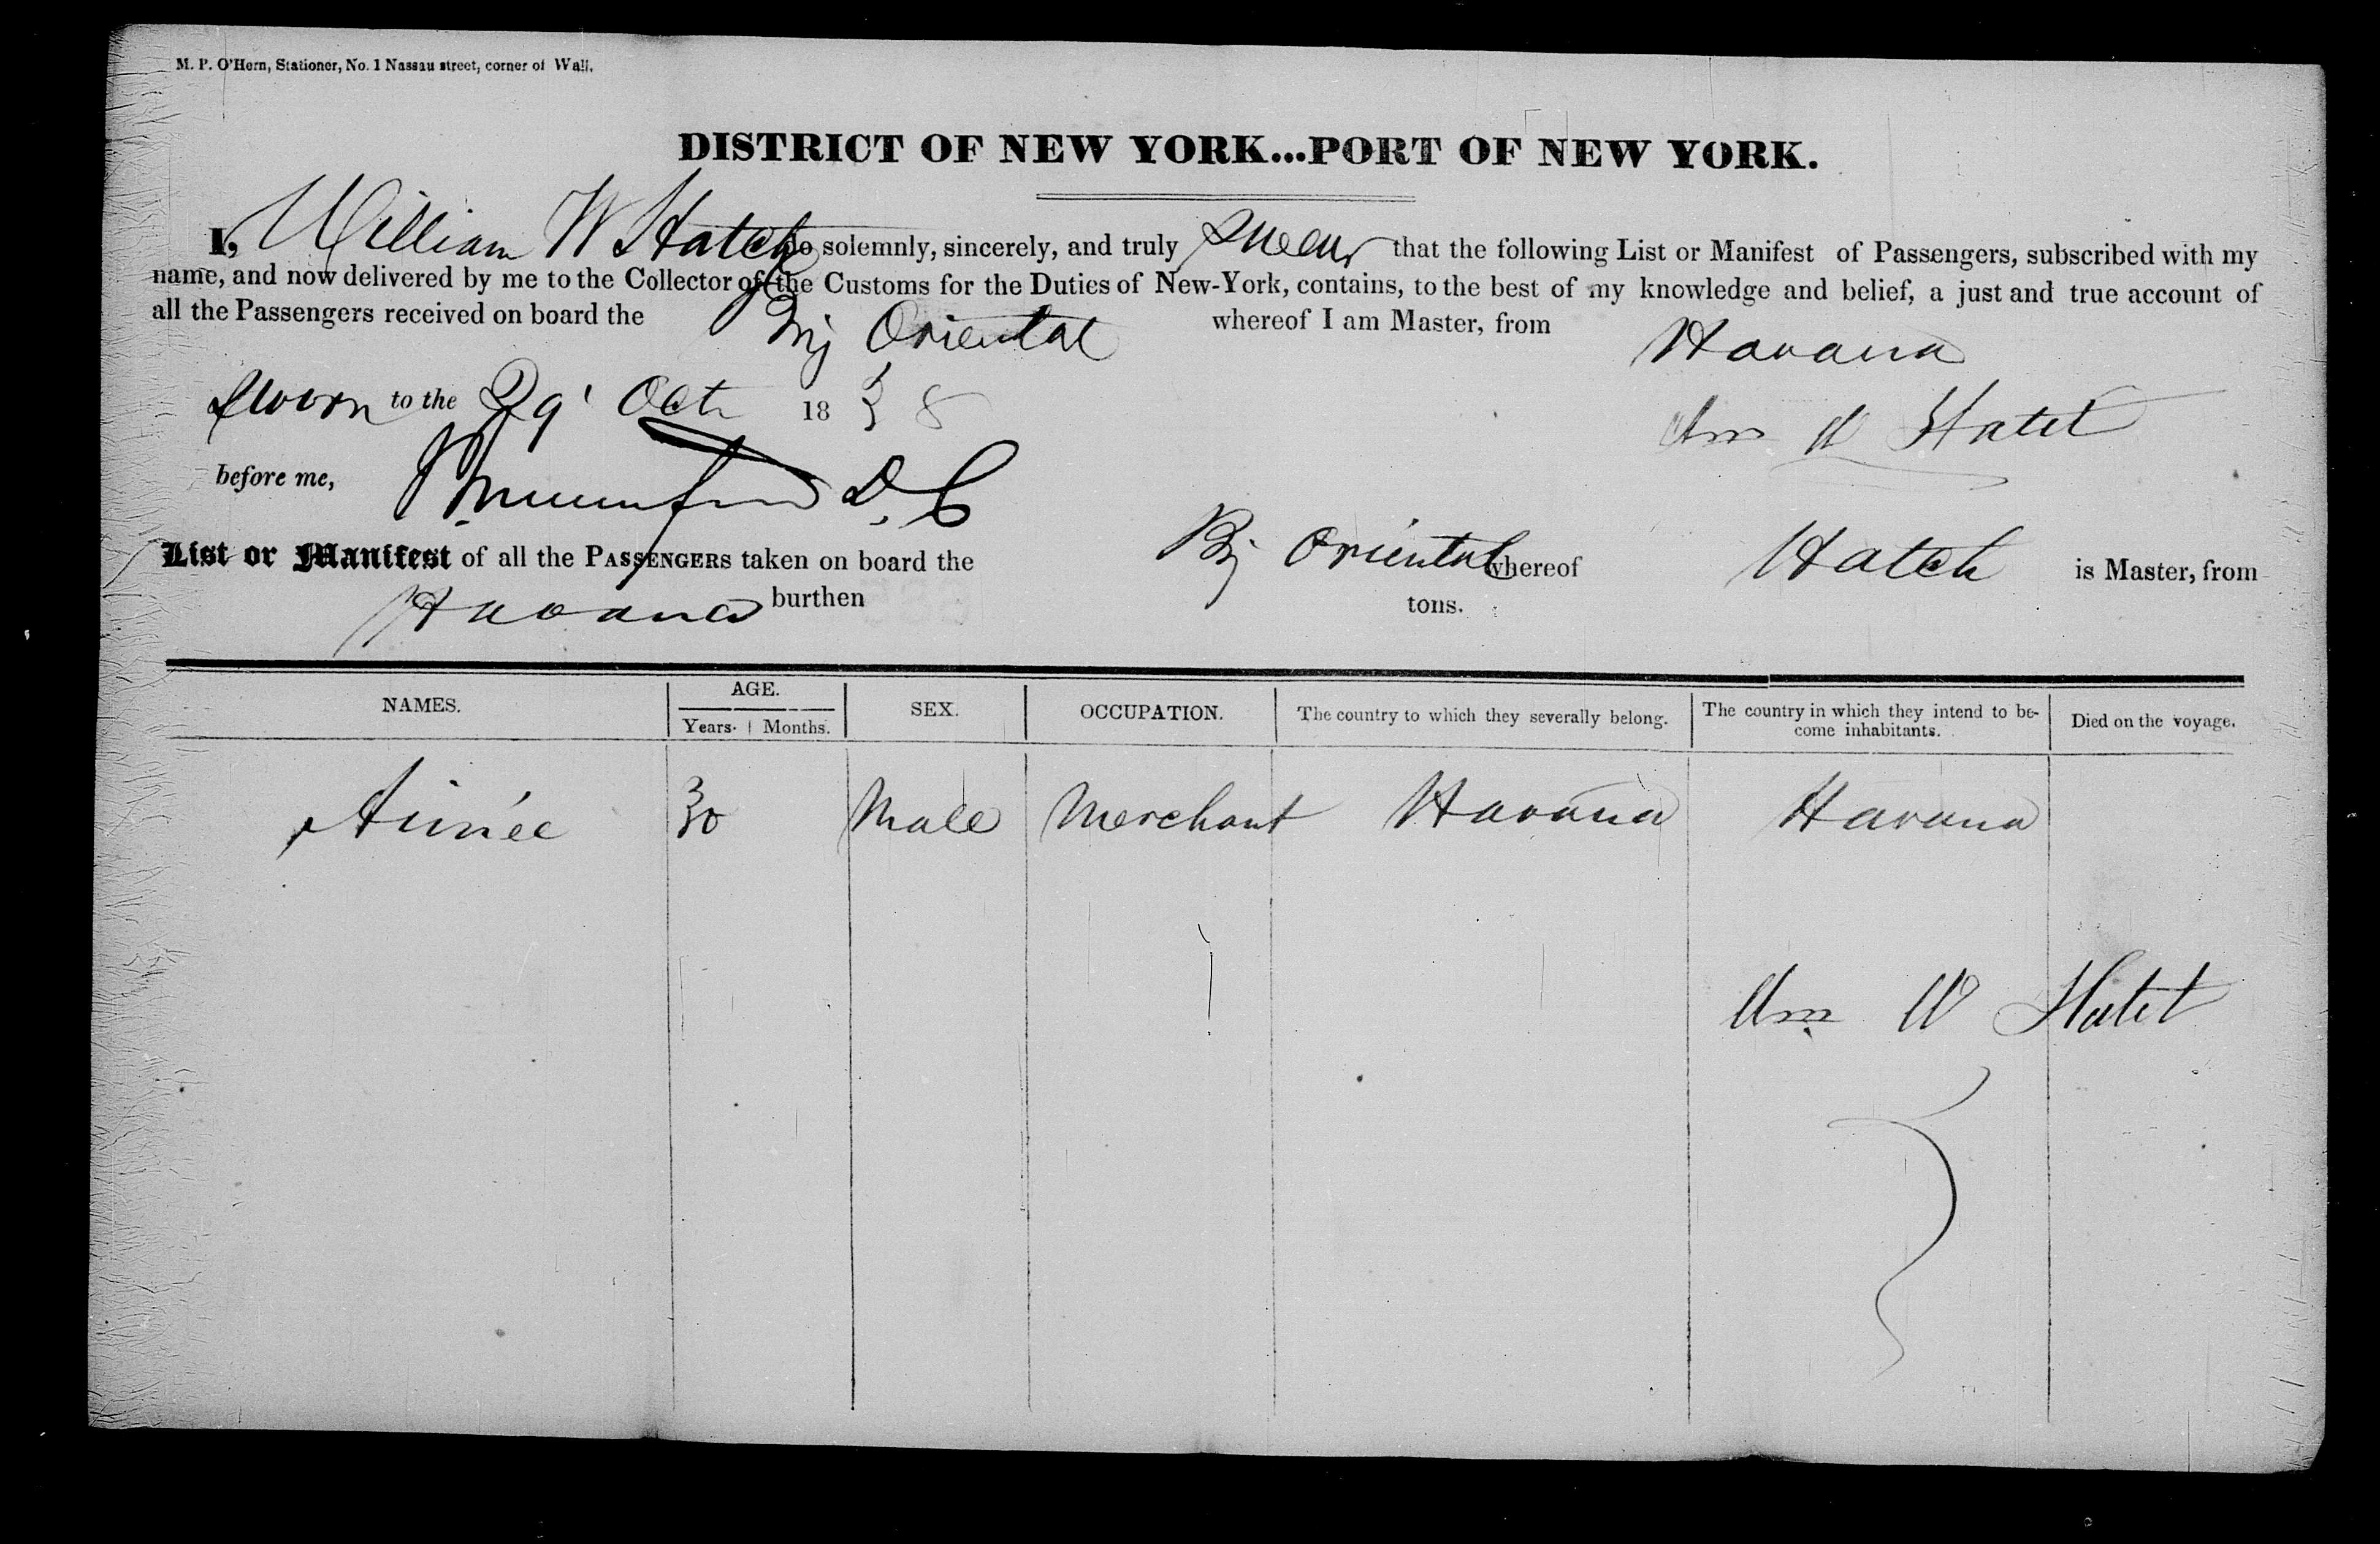 M. P. O'Hern, Stationer, No. 1 Nassau street, corner of Wall.
DISTRICT OF NEW YORK...PORT OF NEW YORK.
I, William W Hatch do solemnly, sincerely, and truly swear that the following List or Manifest of Passengers, subscribed with my
name, and now delivered by me to the Collector of the Customs for the Duties of New-York, contains, to the best of my knowledge and belief, a just and true account of
all the Passengers received on board the Brig Oriental whereof I am Master, from Havana
Sworn to the 29 Oct 1838
Wm W Hatch
before me, D. C
List or Manifest of all the PASSENGERS taken on board the Brig Oriental whereof Hatch is Master, from
Havana burthen tons.
NAMES. AGE. SEX. OCCUPATION. The country to which they severally belong. The country in which they intend to be- Died on the voyage.
Years. Months. come inhabitants.
Aimée 30 Male Merchant Havana Havana
Wm W Hatch